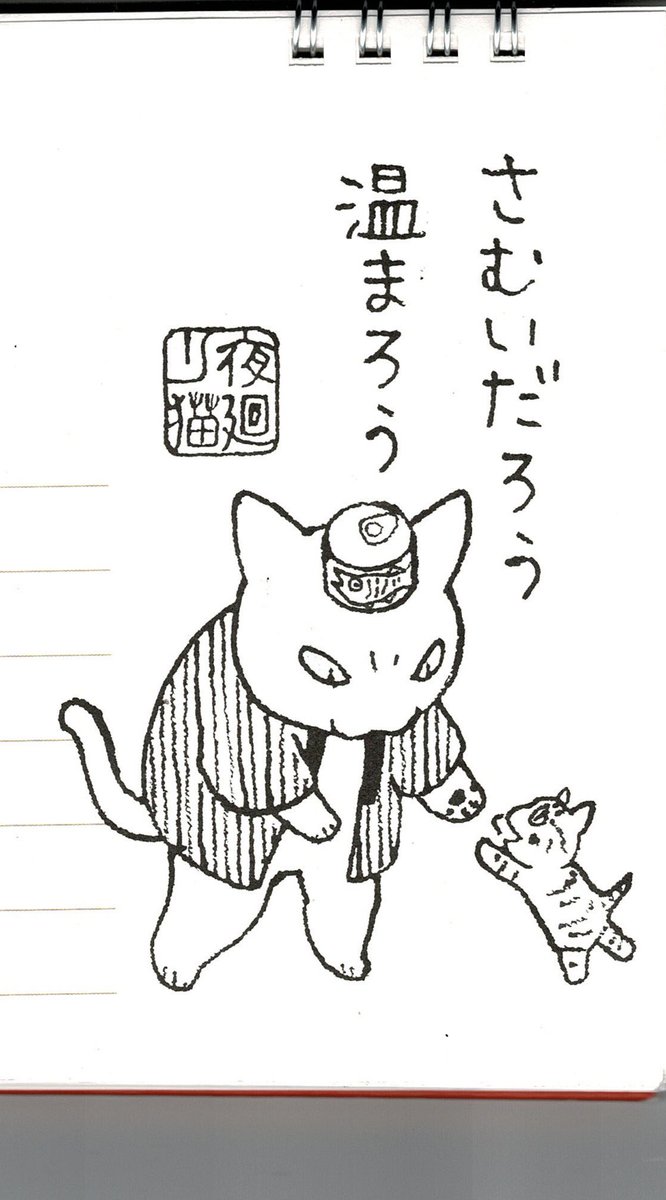 さむいだろう
温まろう
夜廻
り猫